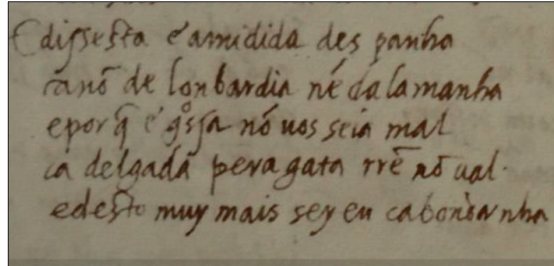 E dissesta e amidida des panha
ca nō de lonbardia nē dalamanha
e por q̄ e gossa nō uos seia mal
ca delgada pera gata rrē nō ual.
e desto muy mais sey eu caboudanha